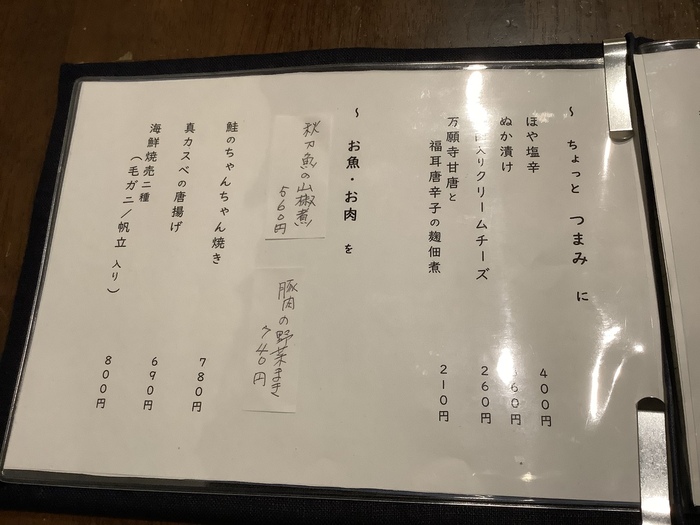 〜 ちょっと つまみ に
ほや塩辛 400円
ぬか漬け 60円
入りクリームチーズ 260円
万願寺甘唐と
福耳唐辛子の麹佃煮 210円
〜 お魚・お肉 を
秋刀魚の山椒煮
560円
豚肉の野菜まき
740円
鮭のちゃんちゃん焼き 780円
真カスベの唐揚げ 690円
海鮮焼売二種
(毛ガニ/帆立 入り) 800円